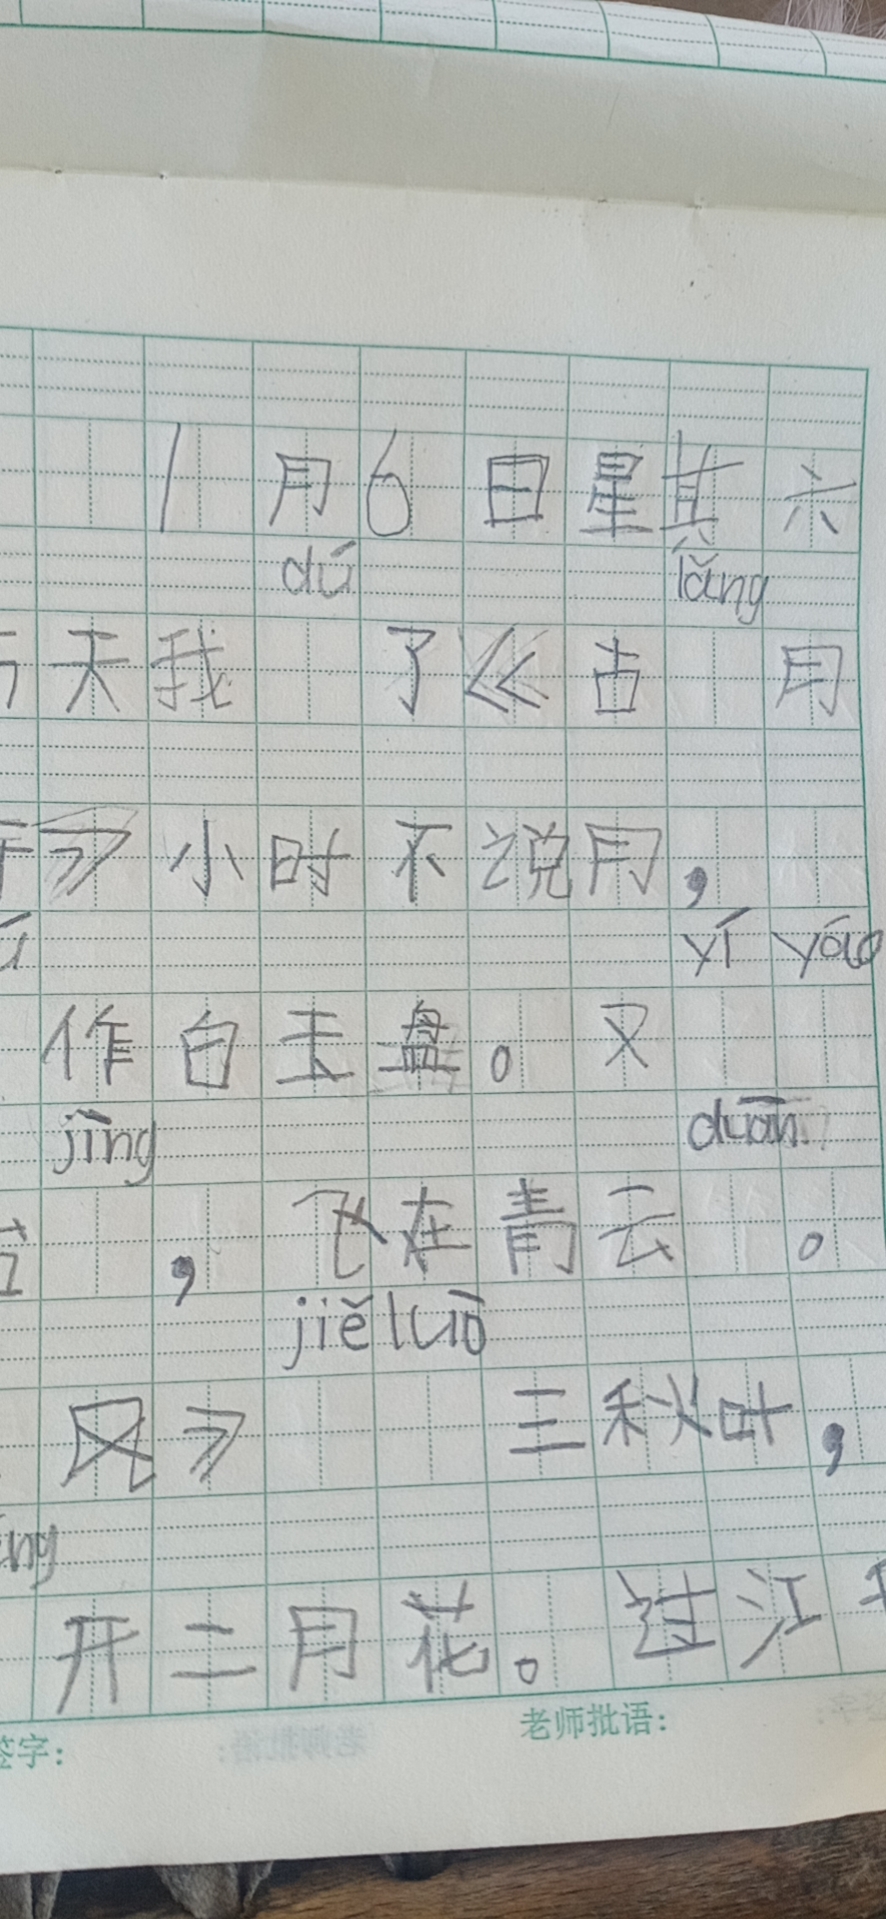 1月6日星其六
dú lǎng
天我 了《古 月
》小时不说月,
yí yáo
作白玉盘。又
jīng duān
,飞在青云 。
jiě luō
风》 三秋叶,
开二月花。过江
签字: 老师批语: